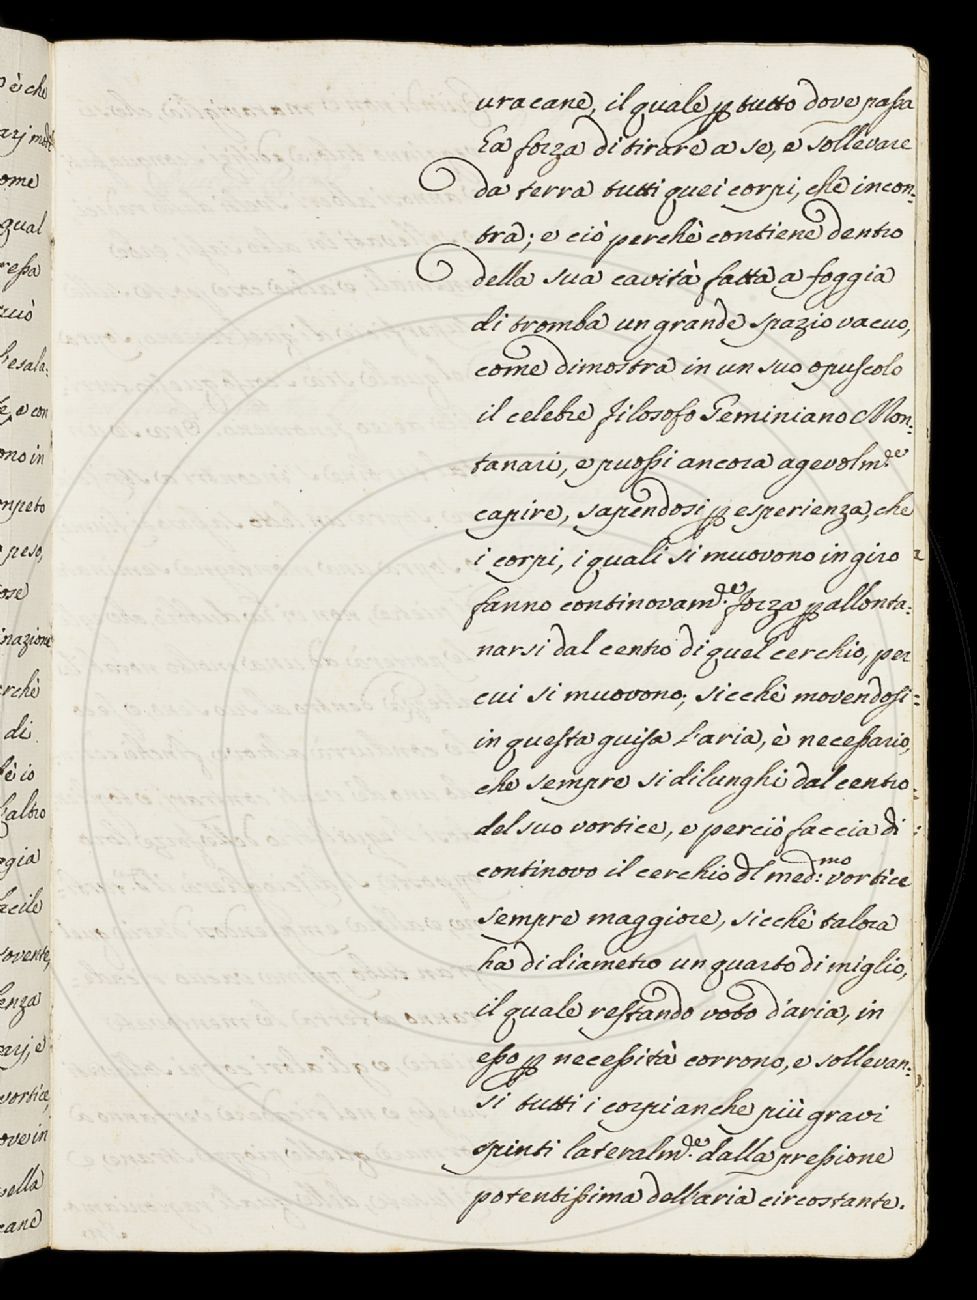 uracane, il quale ꝑ tutto dove passa
ha forza di tirare a se, e sollevare
da terra tutti quei corpi, che incon-
tra; e ciò perchè contiene dentro
della sua cavità fatta a foggia
di tromba un grande spazio vacuo,
come dimostra in un suo opuscolo
il celebre filosofo Geminiano Mon-
tanari, e puossi ancora agevolm.de
capire, sapendosi ꝑ esperienza, che
i corpi, i quali si muovono in giro
fanno continovam.de forza ꝑ allonta-
narsi dal centro di quel cerchio, per
cui si muovono; sicchè movendosi
in questa guisa l'aria, è necessario,
che sempre si dilunghi dal centro
del suo vortice, e perciò faccia di
continovo il cerchio dl med:mo vortice
sempre maggiore, sicchè talora
ha di diametro un quarto di miglio,
il quale restando voto d'aria, in
esso ꝑ necessità corrono, e sollevan-
si tutti i corpi anche più gravi
spinti lateralm.de dalla pressione
potentissima dell'aria circostante.